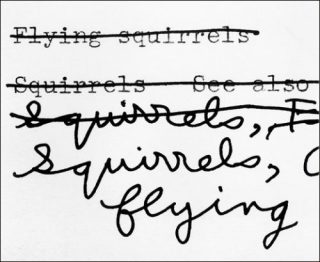 Flying squirrels
Squirrels See also
squirrels, F
squirrels,
flying